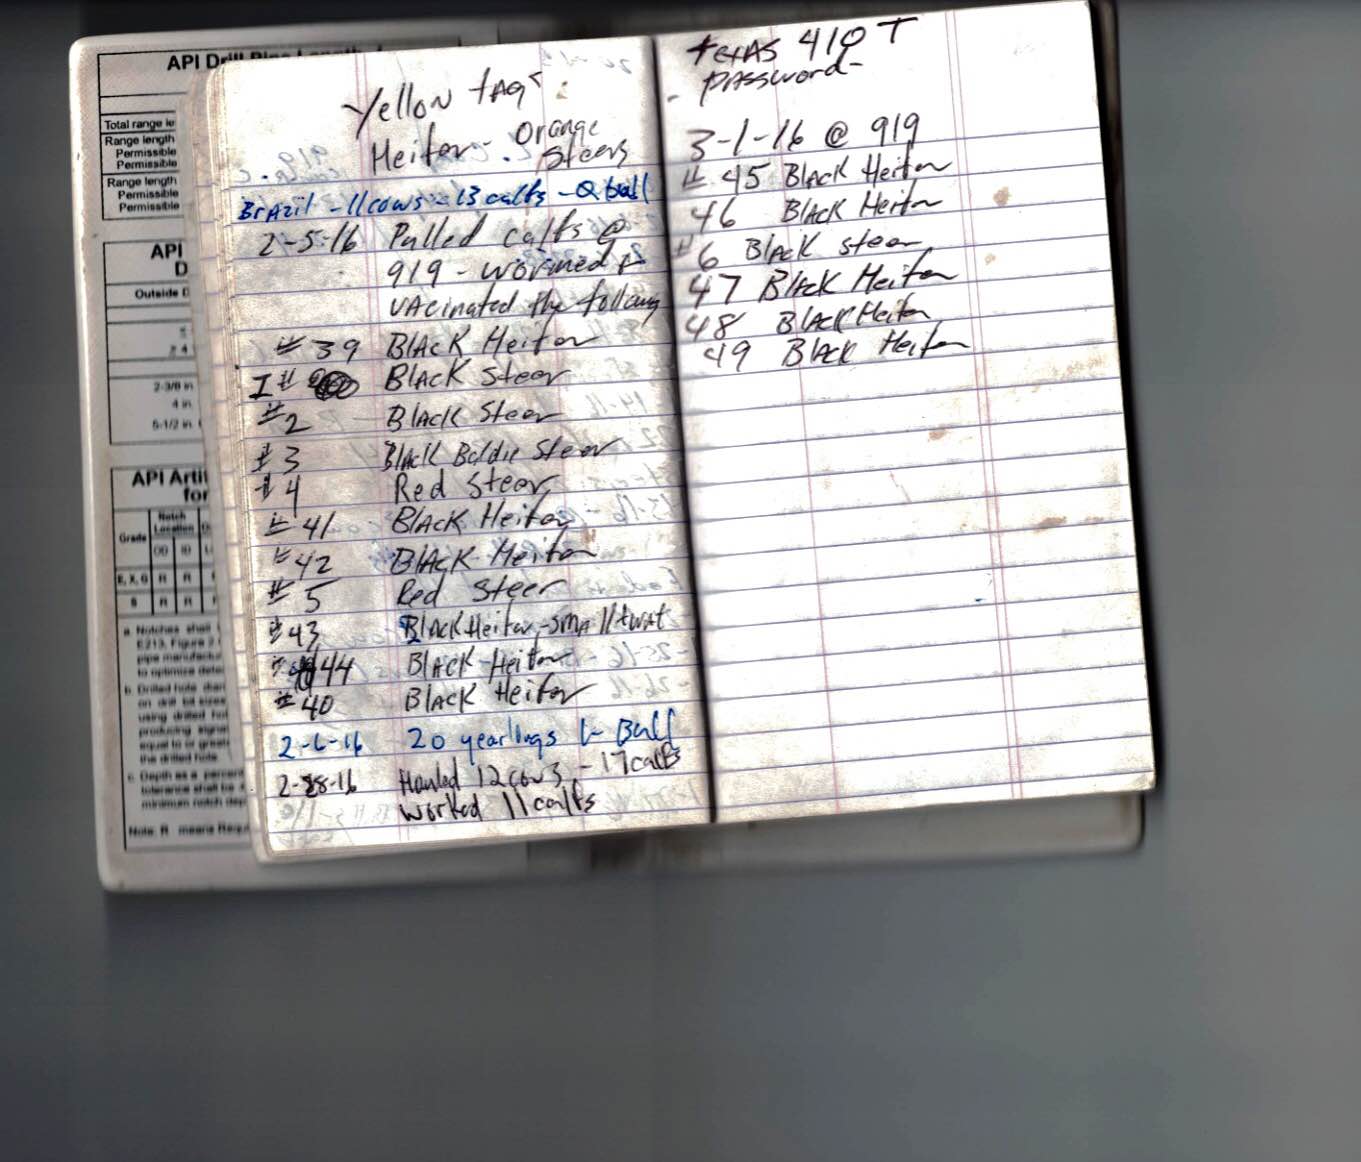 API Drill Pipe Length
Total range le
Range length
Permissible
Permissible
Range length
Permissible
Permissible
API
D
Outside D
2-3/8 in
4 in.
5-1/2 in.
API Arti
for
Grade
Notch
Location
OD ID
E, X, G R R
S R R
a. Notches shall
E213, Figure 2
pipe manufactur
to optimize detec
b. Drilled hole diam
on drill bit sizes
using drilled hol
producing signal
equal to or great
the drilled hole.
c. Depth as a percent
tolerance shall be
minimum notch dep
Note: R means Requ
Yellow tags
Heifer - Orange
Steers
Brazil - 11 cows - 13 calfs - 0 bull
2-5-16 Pulled calfs @
919 - wormed &
VAcinated the following
# 39 BlAcK Heifer
I # BlAcK Steer
#2 BlAcK Steer
# 3 BlAcK Baldie Steer
# 4 Red Steer
# 41 BlAcK Heifer
# 42 BlAcK Heifer
# 5 Red Steer
# 43 BlAcK Heifer - smAll twat
# 44 BlAcK Heifer
# 40 BlAcK Heifer
2-6-16 20 yearlings 1- Bull
2-28-16 Hauled 12 cows - 17 calfs
worked 11 calfs
texAS 410 T
PASSword-
3-1-16 @ 919
# 45 BlAcK Heifer
46 BlAcK Heifer
#6 BlAcK Steer
47 BlAcK Heifer
48 BlAcK Heifer
49 BlAcK Heifer